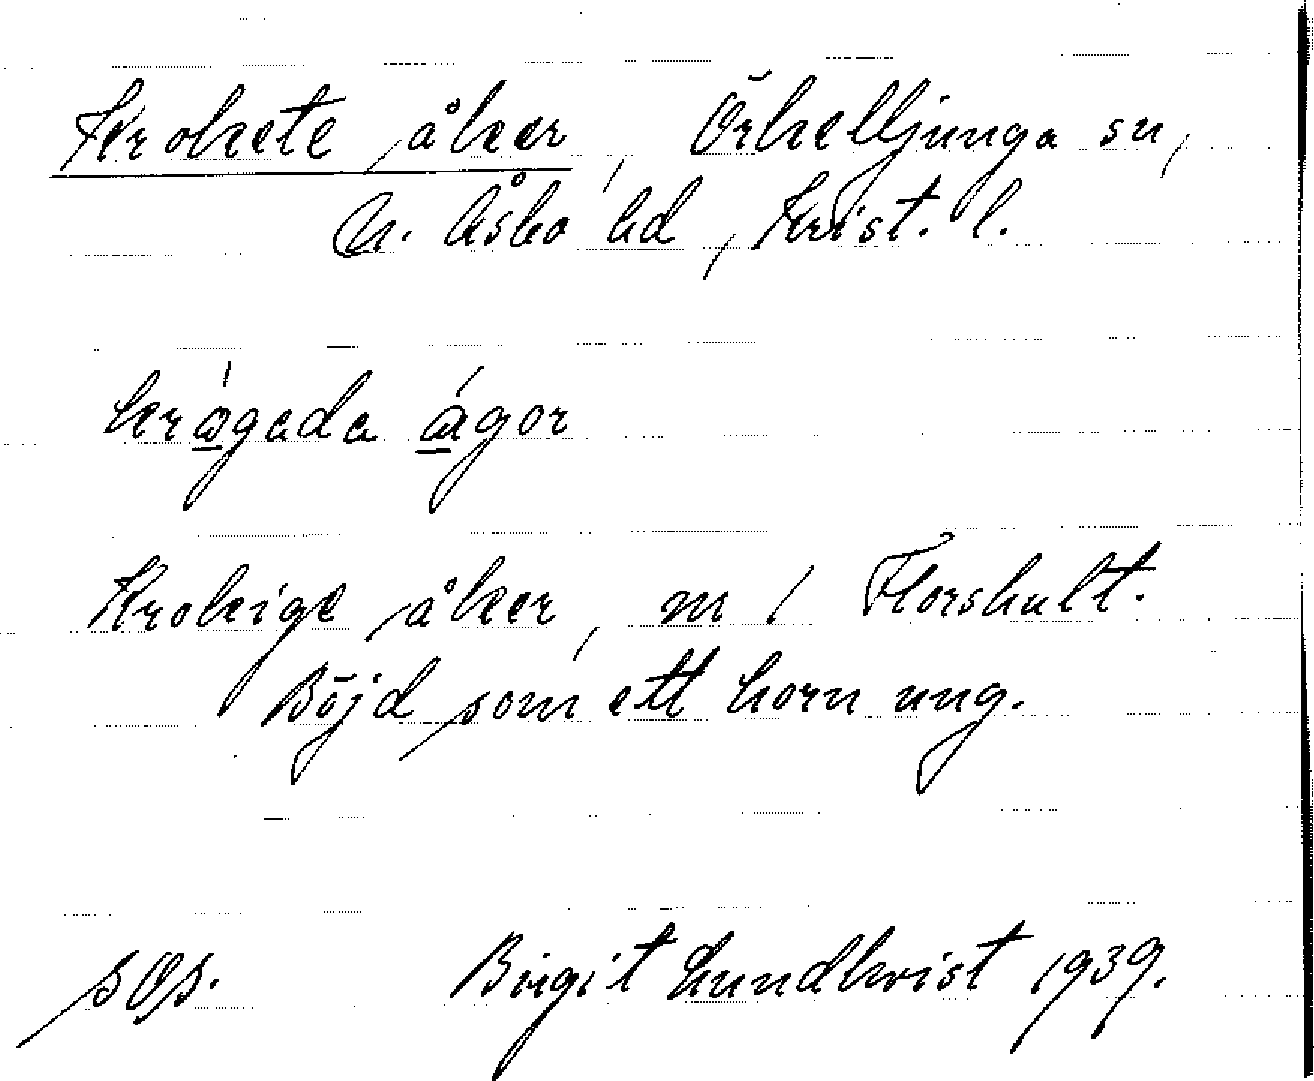 Krokete åker, Örkelljunga sn,
N. Åsbo hd, Krist. l.
krågada ágor
Krokige åker, m i Florshult.
Böjd som ett horn ung.
sgs. Birgit Lundkvist 1939.